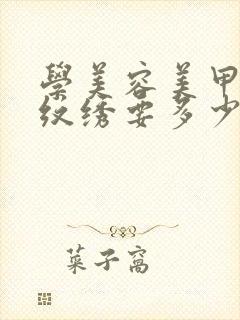 學美容美甲
纹绣要多少
菜子窩